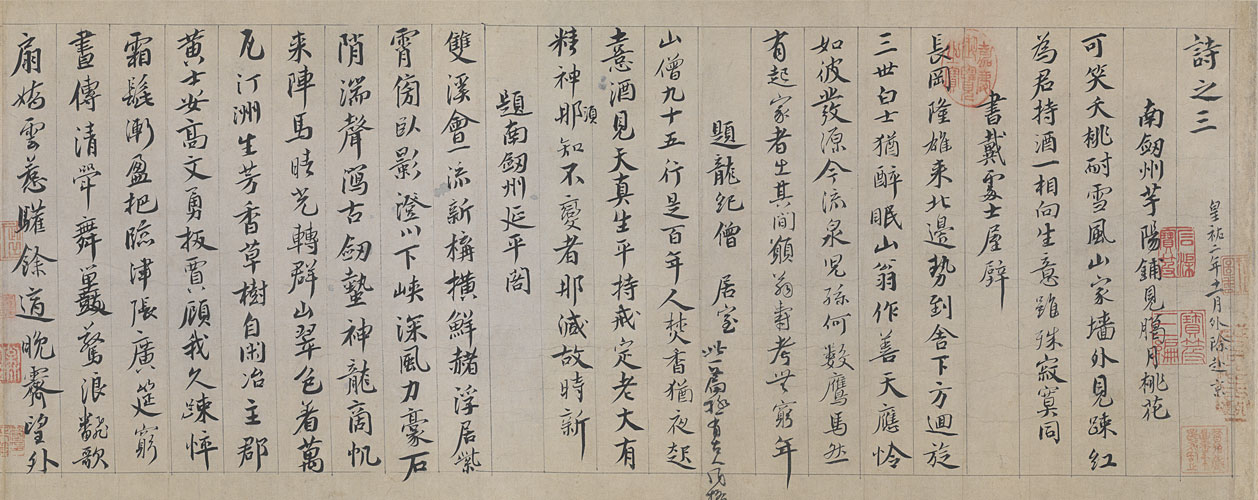 詩之三
皇祐二年十一月外除赴京
南劔州芋陽鋪見臘月桃花
可笑夭桃耐雪風山家墻外見踈紅
為君持酒一相向生意雖殊寂寞同
書戴處士屋壁
長岡隆雄来北邉勢到舍下方迴旋
三世白士猶醉眠山翁作善天應怜
如彼發源今流泉兒孫何數鷹馬然
有起家者生其間願翁壽考無窮年
題龍紀僧居室
此一篇極有古人風格
山僧九十五行是百年人焚香猶夜起
憙酒見天真生平持戒定老大有
精神須知不變者那減故時新
題南劔州延平閣
雙溪會一流新構橫鮮赭浮居紫
霄傍臥影澄川下峽深風力豪石
陗湍聲寫古劔蟄神龍商帆
来陣馬晴光轉群山翠色着萬
瓦汀洲生芳香草樹自閑冶主郡
黄士安高文勇扳賈顧我久踈怦
霜髭漸盈把臨津張廣筵窮
晝傳清斝舞鼉鼓驚浪翻歌
扇嬌雲惹驩餘適晚霽望外